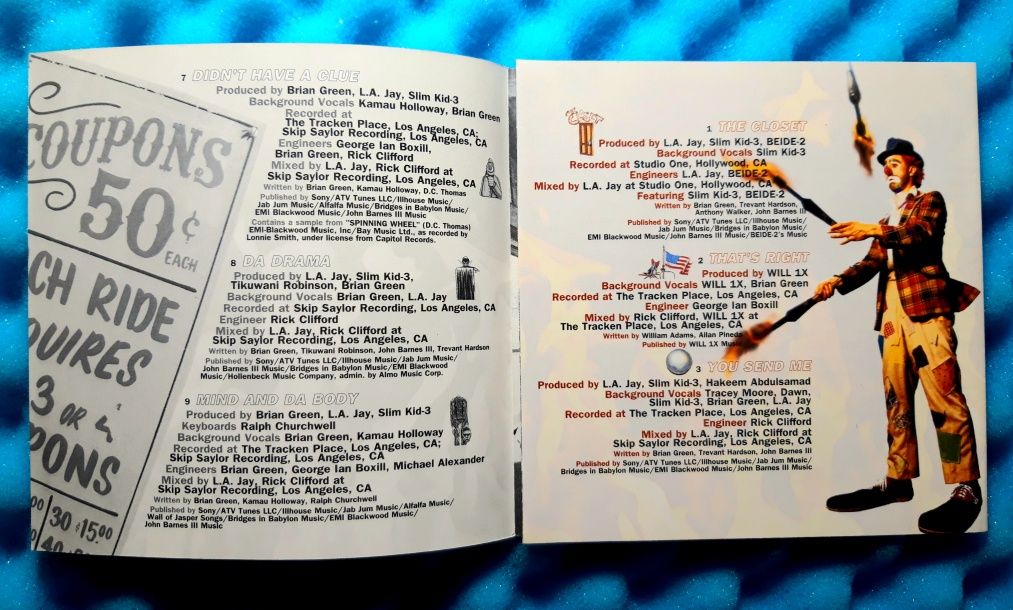 COUPONS
50¢
EACH
CH RIDE
UIRES
3 OR 4
PONS
30 15.00
40
7 DIDN'T HAVE A CLUE
Produced by Brian Green, L.A. Jay, Slim Kid-3
Background Vocals Kamau Holloway, Brian Green
Recorded at
The Tracken Place, Los Angeles, CA;
Skip Saylor Recording, Los Angeles, CA
Engineers George Ian Boxill,
Brian Green, Rick Clifford
Mixed by L.A. Jay, Rick Clifford at
Skip Saylor Recording, Los Angeles, CA
Written by Brian Green, Kamau Holloway, D.C. Thomas
Published by Sony/ATV Tunes LLC/Illhouse Music/
Jab Jum Music/Alfalfa Music/Bridges in Babylon Music/
EMI Blackwood Music/John Barnes III Music
Contains a sample from "SPINNING WHEEL" (D.C. Thomas)
EMI-Blackwood Music, Inc/Bay Music Ltd., as recorded by
Lonnie Smith, under license from Capitol Records.
8 DA DRAMA
Produced by L.A. Jay, Slim Kid-3,
Tikuwani Robinson, Brian Green
Background Vocals Brian Green, L.A. Jay
Recorded at Skip Saylor Recording, Los Angeles, CA
Engineer Rick Clifford
Mixed by L.A. Jay, Rick Clifford at
Skip Saylor Recording, Los Angeles, CA
Written by Brian Green, Tikuwani Robinson, John Barnes III, Trevant Hardson
Published by Sony/ATV Tunes LLC/Illhouse Music/Jab Jum Music/
John Barnes III Music/Bridges in Babylon Music/EMI Blackwood
Music/Hollenbeck Music Company, admin. by Almo Music Corp.
9 MIND AND DA BODY
Produced by Brian Green, L.A. Jay, Slim Kid-3
Keyboards Ralph Churchwell
Background Vocals Brian Green, Kamau Holloway
Recorded at The Tracken Place, Los Angeles, CA;
Skip Saylor Recording, Los Angeles, CA
Engineers Brian Green, George Ian Boxill, Michael Alexander
Mixed by L.A. Jay, Rick Clifford at
Skip Saylor Recording, Los Angeles, CA
Written by Brian Green, Kamau Holloway, Ralph Churchwell
Published by Sony/ATV Tunes LLC/Illhouse Music/Jab Jum Music/Alfalfa Music/
Wall of Jasper Songs/Bridges in Babylon Music/EMI Blackwood Music/
John Barnes III Music
1 THE CLOSET
Produced by L.A. Jay, Slim Kid-3, BEIDE-2
Background Vocals Slim Kid-3
Recorded at Studio One, Hollywood, CA
Engineers L.A. Jay, BEIDE-2
Mixed by L.A. Jay at Studio One, Hollywood, CA
Featuring Slim Kid-3, BEIDE-2
Written by Brian Green, Trevant Hardson,
Anthony Walker, John Barnes III
Published by Sony/ATV Tunes LLC/Illhouse Music/
Jab Jum Music/Bridges in Babylon Music/
EMI Blackwood Music/John Barnes III Music/BEIDE-2's Music
2 THAT'S RIGHT
Produced by WILL 1X
Background Vocals WILL 1X, Brian Green
Recorded at The Tracken Place, Los Angeles, CA
Engineer George Ian Boxill
Mixed by Rick Clifford, WILL 1X at
The Tracken Place, Los Angeles, CA
Written by William Adams, Allan Pineda
Published by WILL 1X Music
3 YOU SEND ME
Produced by L.A. Jay, Slim Kid-3, Hakeem Abdulsamad
Background Vocals Tracey Moore, Dawn,
Slim Kid-3, Brian Green, L.A. Jay
Recorded at The Tracken Place, Los Angeles, CA
Engineer Rick Clifford
Mixed by L.A. Jay, Rick Clifford at
Skip Saylor Recording, Los Angeles, CA
Written by Brian Green, Trevant Hardson, John Barnes III
Published by Sony/ATV Tunes LLC/Illhouse Music/Jab Jum Music/
Bridges in Babylon Music/EMI Blackwood Music/John Barnes III Music